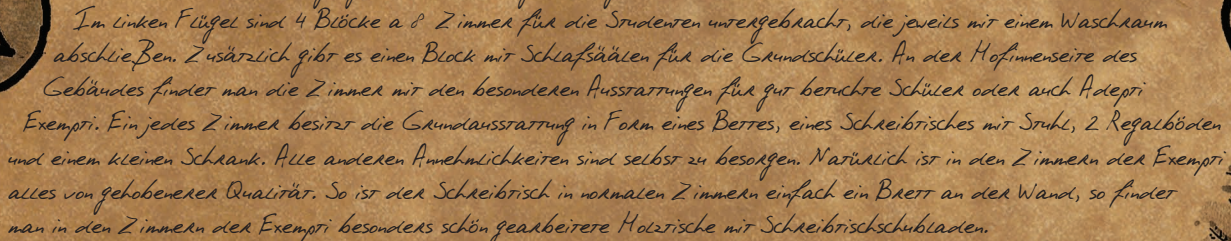 Im linken Flügel sind 4 Blöcke a 8 Zimmer für die Studenten untergebracht, die jeweils mit einem Waschraum
abschließen. Zusätzlich gibt es einen Block mit Schlafsäälen für die Grundschüler. An der Hofinnenseite des
Gebäudes findet man die Zimmer mit den besonderen Ausstattungen für gut betuchte Schüler oder auch Adepti
Exempti. Ein jedes Zimmer besitzt die Grundausstattung in Form eines Bettes, eines Schreibtisches mit Stuhl, 2 Regalböden
und einem kleinen Schrank. Alle anderen Annehmlichkeiten sind selbst zu besorgen. Natürlich ist in den Zimmern der Exempti
alles von gehobenerer Qualität. So ist der Schreibtisch in normalen Zimmern einfach ein Brett an der Wand, so findet
man in den Zimmern der Exempti besonders schön gearbeitete Holztische mit Schreibtischschubladen.